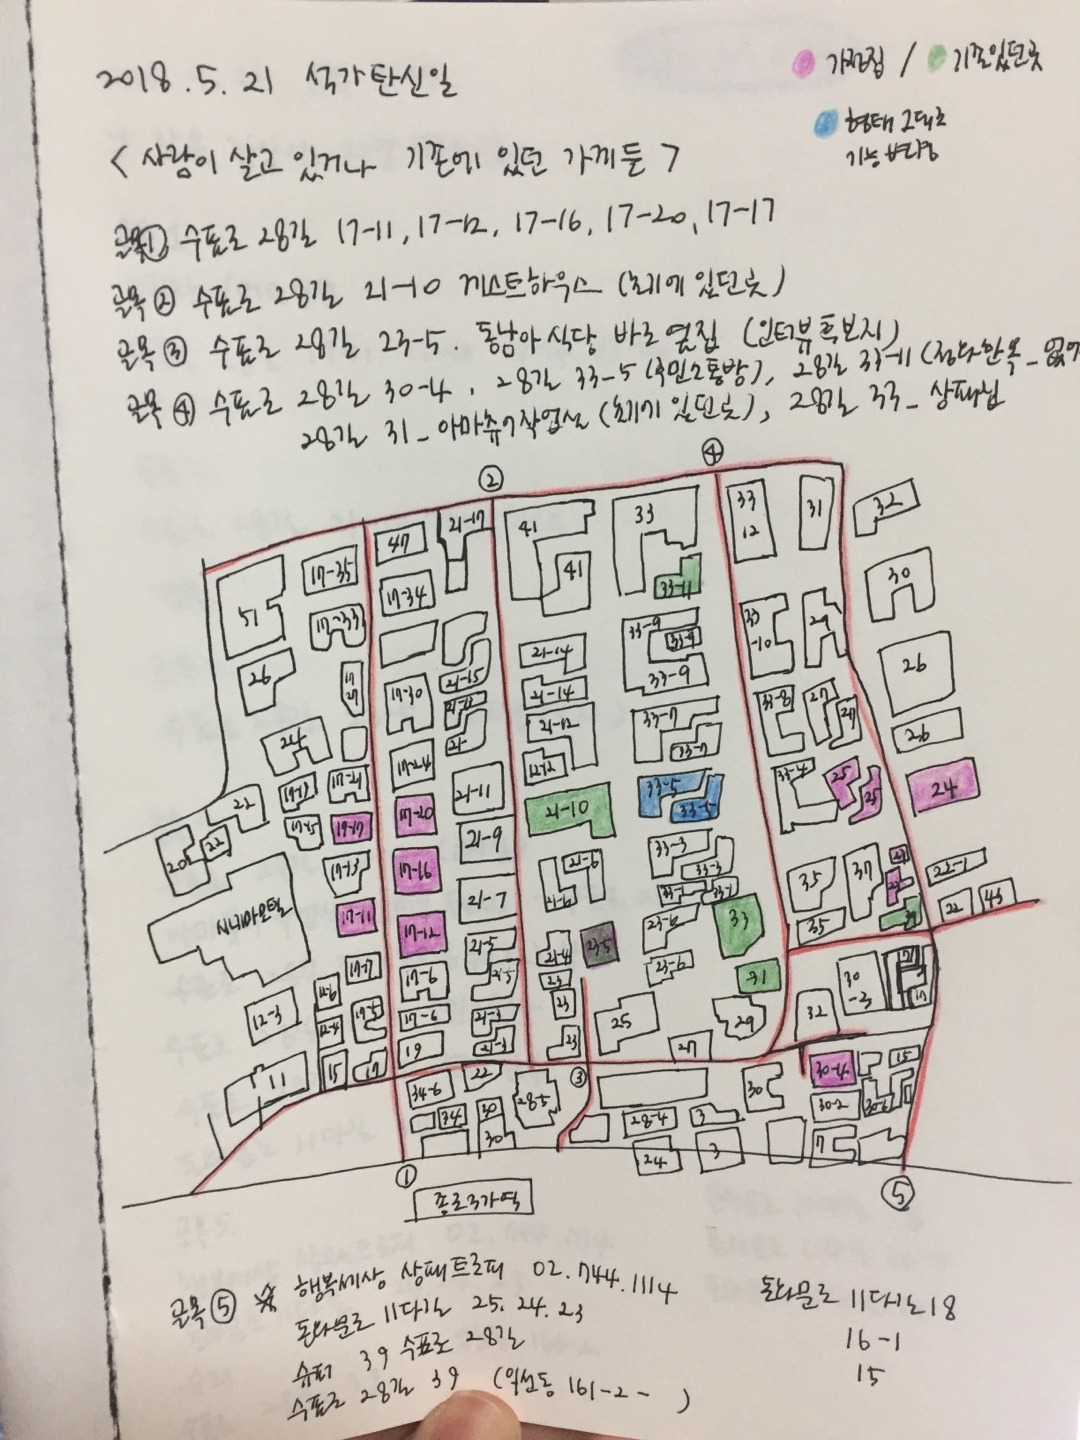 2018.5.21 석가탄신일
가정집 / 기존있던곳
형태 그대로
기능 변형
<사람이 살고 있거나 기존에 있던 가게들>
골목① 수표로 28길 17-11, 17-12, 17-16, 17-20, 17-17
골목② 수표로 28길 21-10 게스트하우스 (초기에 있던곳)
골목③ 수표로 28길 23-5. 동남아식당 바로 옆집 (인터뷰후보지)
골목④ 수표로 28길 30-4, 28길 33-5 (국민소통방), 28길 33-11
28길 31_ 작업실 (초기에 있던곳), 28길 33_ 상패님
②
④
47
21-17
41
33
33
12
31
32
51
17-35
17-34
41
33-11
30
17-33
33-9
33-9
33
-10
29
26
17
27
17-30
21-15
21-14
21-14
33-9
33-8
27
27
26
24
21-12
33-7
33-7
26
17-21
17-24
21-
12-12
33-4
25
25
24
22
17-19
17-20
21-11
21-10
33-5
33-5
20
22
17-15
17-17
21-9
33-3
33-3
17-13
17-16
21-6
21-6
33-1
33-1
35
37
23
23
22-1
시네마모텔
17-11
17-12
21-7
23-6
33
35
39
22
43
21-5
21-5
21-4
23-5
23-6
31
30
-3
17
17
12-6
17-7
17-6
23
23
32
12-3
12-4
17-5
17-6
21-3
25
29
11
15
17
19
21-3
23
27
30-4
15
34-6
22
28-5
③
30
30-2
30-6
34
30
30
28-4
3
24
3
7
①
종로3가역
⑤
골목⑤ ☆ 행복세상 상패트로피 02.744.1114
돈화문로 11다길 25. 24. 23
슈퍼 39 수표로 28길
수표로 28길 39 (익선동 161-2- )
돈화문로 11다길 18
16-1
15